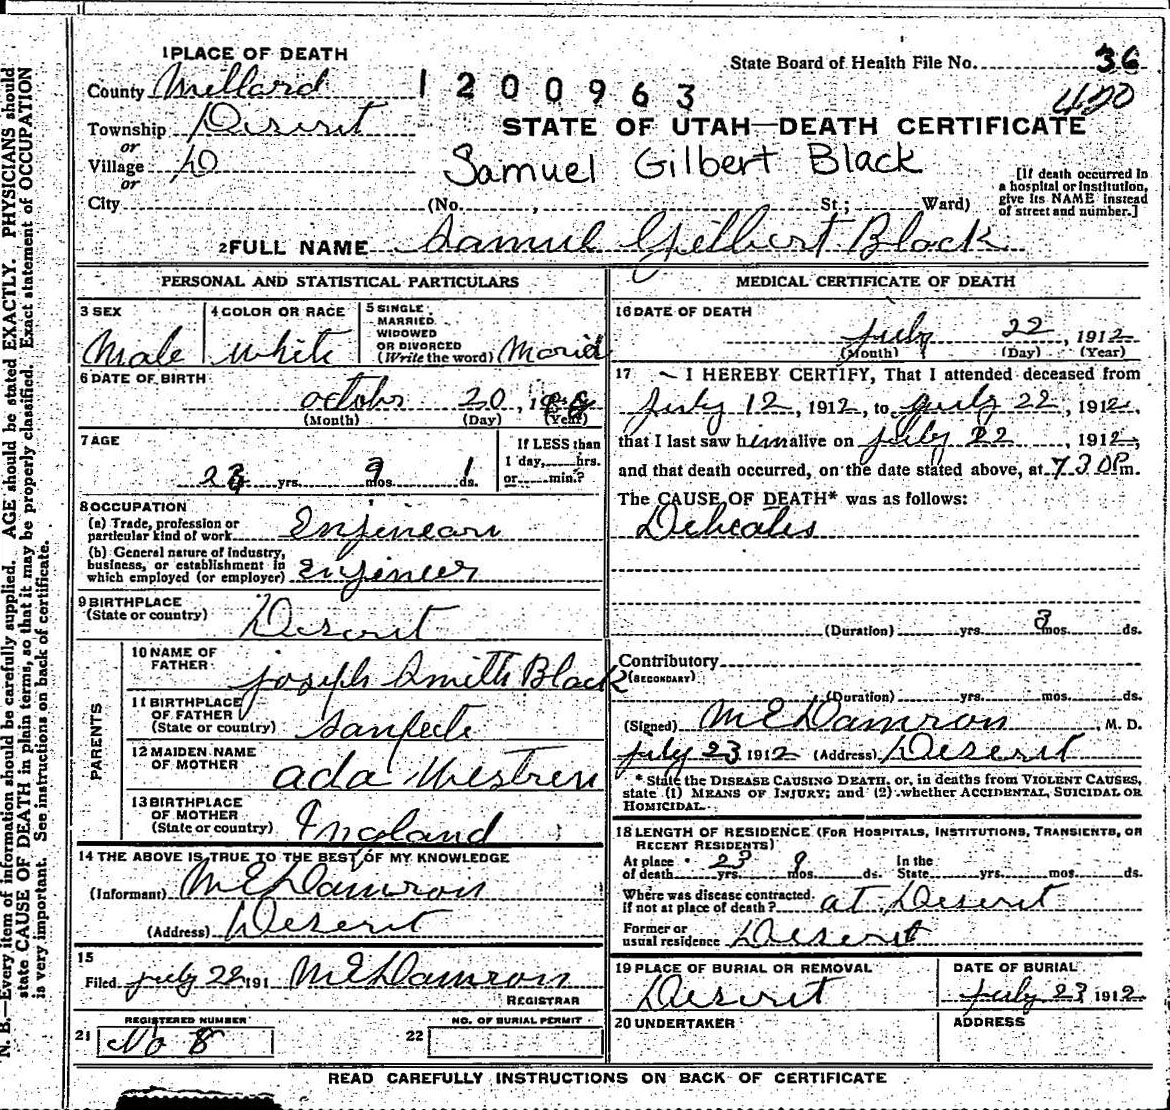 1 PLACE OF DEATH
County Millard
Township Deserit
or
Village D
or
City (No. , St.; Ward)
1200963
State Board of Health File No. 36
420
STATE OF UTAH—DEATH CERTIFICATE
Samuel Gilbert Black
[If death occurred in
a hospital or institution,
give its NAME instead
of street and number.]
2 FULL NAME Samuel Gilbert Black
PERSONAL AND STATISTICAL PARTICULARS
3 SEX
Male
4 COLOR OR RACE
White
5 SINGLE
MARRIED
WIDOWED
OR DIVORCED
(Write the word) Maried
6 DATE OF BIRTH
October 20, 1
(Month) (Day) (Year)
7 AGE
yrs. 9 mos. 1 ds.
If LESS than
1 day, hrs.
or min.?
8 OCCUPATION
(a) Trade, profession or
particular kind of work
(b) General nature of industry,
business, or establishment in
which employed (or employer) Engineer
9 BIRTHPLACE
(State or country) Deserit
PARENTS
10 NAME OF
FATHER Joseph Smith Black
11 BIRTHPLACE
OF FATHER
(State or country) Sanpete
12 MAIDEN NAME
OF MOTHER Ada
13 BIRTHPLACE
OF MOTHER
(State or country) England
14 THE ABOVE IS TRUE TO THE BEST OF MY KNOWLEDGE
(Informant) M E Damron
(Address) Deserit
15
Filed July 22 191 M E Damron
REGISTRAR
REGISTERED NUMBER
21 No 8
NO. OF BURIAL PERMIT
22
MEDICAL CERTIFICATE OF DEATH
16 DATE OF DEATH
July 22, 1912
(Month) (Day) (Year)
17 I HEREBY CERTIFY, That I attended deceased from
July 12, 1912, to July 22, 1912,
that I last saw him alive on July 22, 1912,
and that death occurred, on the date stated above, at 7 30 Pm.
The CAUSE OF DEATH* was as follows:
(Duration) yrs. 3 mos. ds.
Contributory
(SECONDARY)
(Duration) yrs. mos. ds.
(Signed) M E Damron, M. D.
July 23 1912 (Address) Deserit
* State the DISEASE CAUSING DEATH, or, in deaths from VIOLENT CAUSES,
state (1) MEANS OF INJURY; and (2) whether ACCIDENTAL, SUICIDAL OR
HOMICIDAL.
18 LENGTH OF RESIDENCE (FOR HOSPITALS, INSTITUTIONS, TRANSIENTS, OR
RECENT RESIDENTS)
At place of death 23 yrs. 9 mos. ds. In the State yrs. mos. ds.
Where was disease contracted,
if not at place of death? at Deserit
Former or
usual residence Deserit
19 PLACE OF BURIAL OR REMOVAL
Deserit
DATE OF BURIAL
July 23 1912
20 UNDERTAKER
ADDRESS
READ CAREFULLY INSTRUCTIONS ON BACK OF CERTIFICATE
N. B.—Every item of information should be carefully supplied. AGE should be stated EXACTLY. PHYSICIANS should
state CAUSE OF DEATH in plain terms, so that it may be properly classified. Exact statement of OCCUPATION
is very important. See instructions on back of certificate.